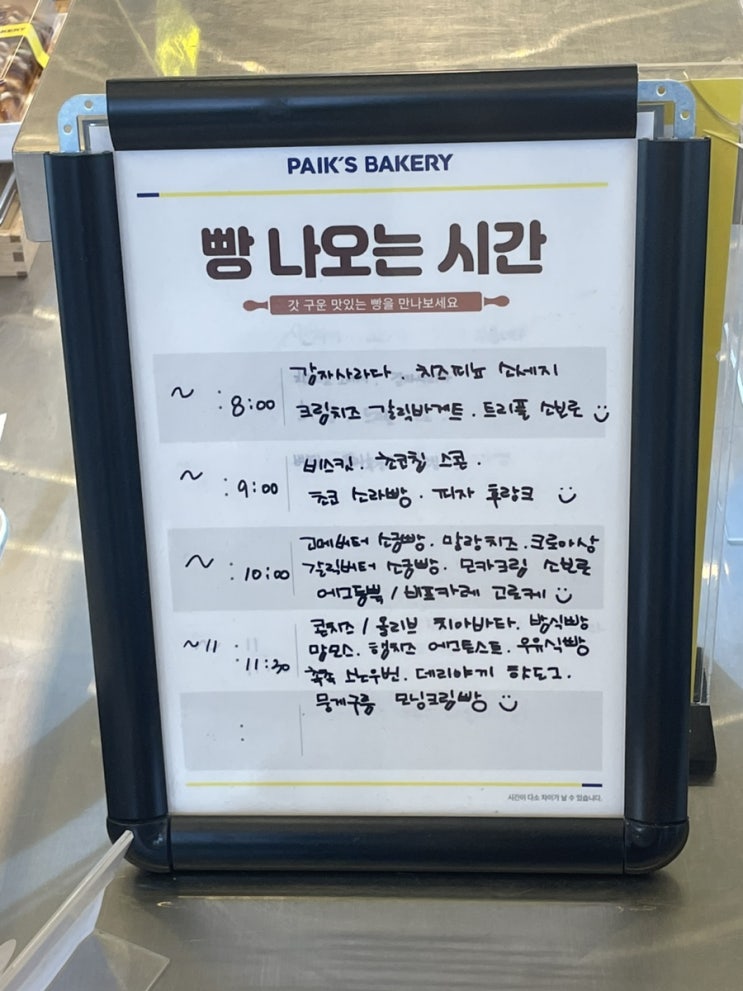 PAIK'S BAKERY
빵 나오는 시간
갓 구운 맛있는 빵을 만나보세요
~ :8:00
감자사라다. 치즈피뇨 소세지
크림치즈 갈릭바게트. 트리플 소보로
~ :9:00
비스킷. 초코칩 스콘.
초코 소라빵. 피자 후랑크
~ :10:00
고메버터 소금빵. 말랑치즈. 크로아상
갈릭버터 소금빵. 모카크림 소보로
에그듬뿍 / 비프카레 고로케
~11 :11:30
콘치즈 / 올리브 치아바타. 밤식빵
맘모스. 햄치즈 에그토스트. 우유식빵
촉촉 소노우번. 데리야끼 핫도그.
뭉게구름 모닝크림빵
:
시간이 다소 차이가 날 수 있습니다.